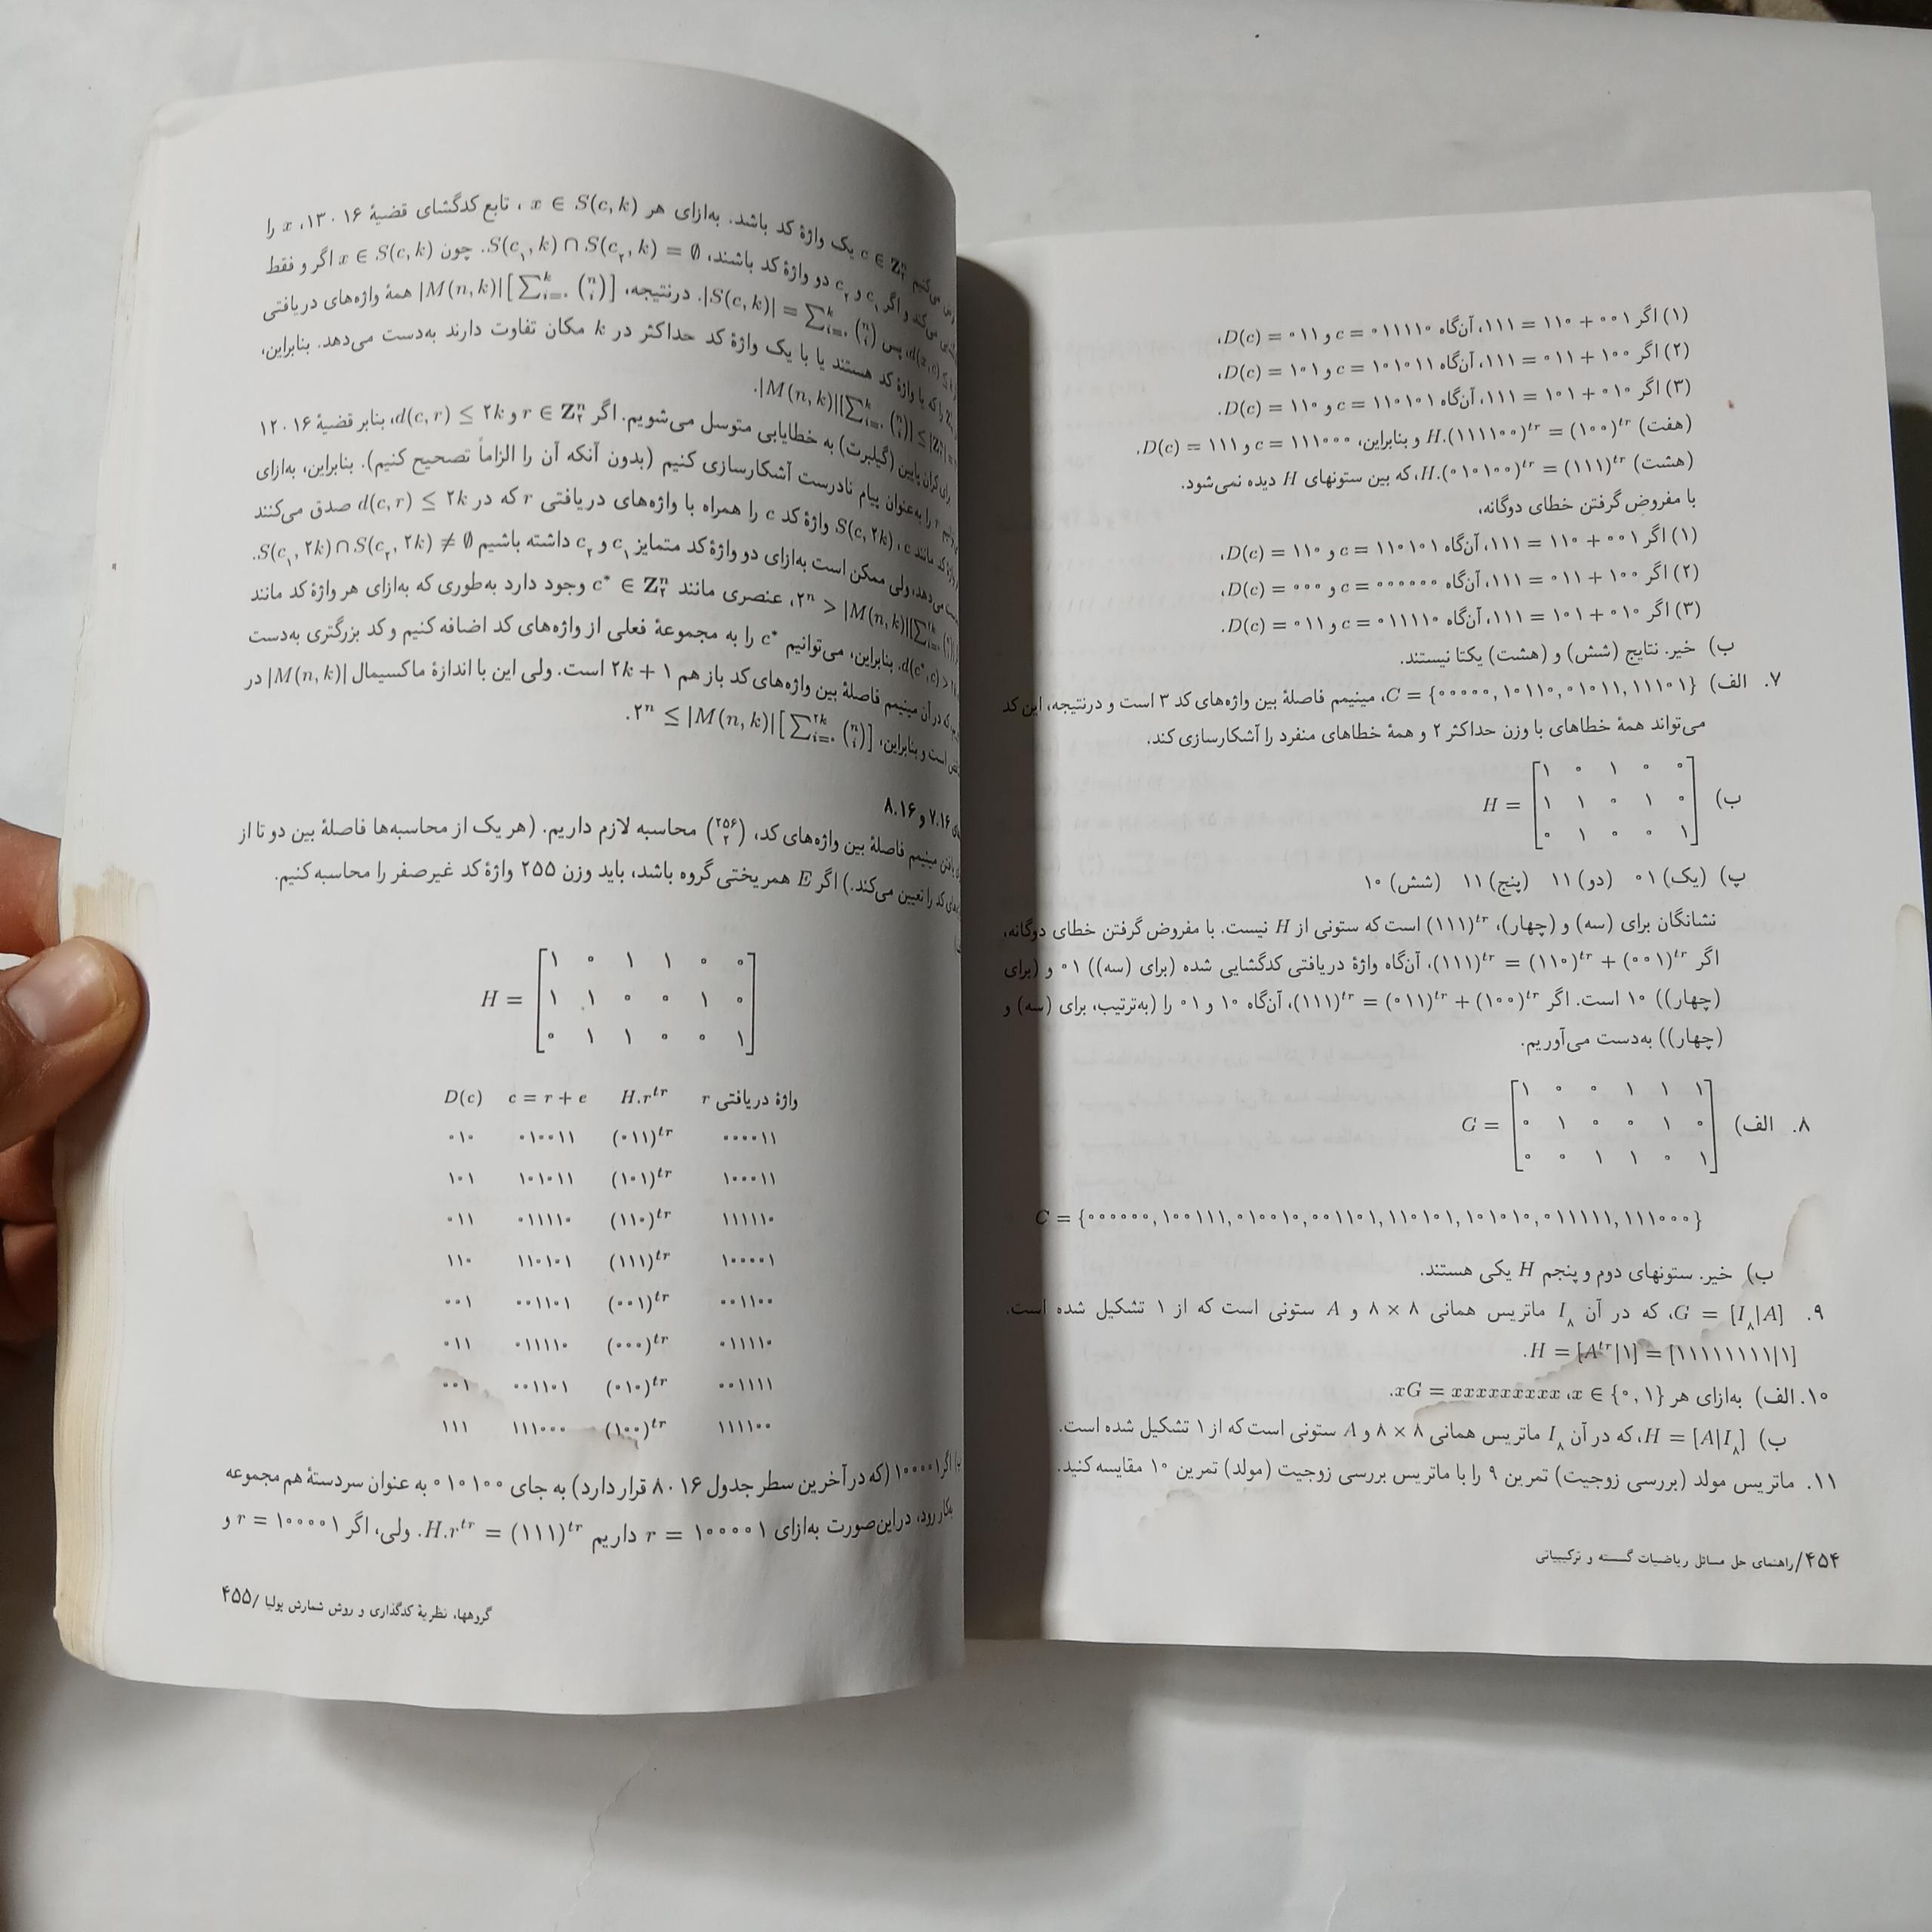 (۱) اگر ۰۰۱ + ۱۱۰ = ۱۱۱، آن‌گاه c = ۰۱۱۱۱۰ و D(c) = ۰۱۱،
(۲) اگر ۱۰۰ + ۰۱۱ = ۱۱۱، آن‌گاه c = ۱۰۱۰۱۱ و D(c) = ۱۰۱،
(۳) اگر ۰۱۰ + ۱۰۱ = ۱۱۱، آن‌گاه c = ۱۱۰۱۰۱ و D(c) = ۱۱۰.
(هفت) H.(۱۱۱۱۰۰)^{tr} = (۱۰۰)^{tr} و بنابراین، c = ۱۱۱۰۰۰ و D(c) = ۱۱۱.
(هشت) H.(۰۱۰۱۰۰)^{tr} = (۱۱۱)^{tr}، که بین ستونهای H دیده نمی‌شود.
با مفروض گرفتن خطای دوگانه،
(۱) اگر ۰۰۱ + ۱۱۰ = ۱۱۱، آن‌گاه c = ۱۱۰۱۰۱ و D(c) = ۱۱۰،
(۲) اگر ۱۰۰ + ۰۱۱ = ۱۱۱، آن‌گاه c = ۰۰۰۰۰۰ و D(c) = ۰۰۰،
(۳) اگر ۰۱۰ + ۱۰۱ = ۱۱۱، آن‌گاه c = ۰۱۱۱۱۰ و D(c) = ۰۱۱.
ب) خیر. نتایج (شش) و (هشت) یکتا نیستند.
۷. الف) C = {۰۰۰۰۰, ۱۰۱۱۰, ۰۱۰۱۱, ۱۱۱۰۱}، مینیمم فاصلهٔ بین واژه‌های کد ۳ است و درنتیجه، این کد
می‌تواند همهٔ خطاهای با وزن حداکثر ۲ و همهٔ خطاهای منفرد را آشکارسازی کند.
ب) H =
۱ ۰ ۱ ۰ ۰
۱ ۱ ۰ ۱ ۰
۰ ۱ ۰ ۰ ۱
پ) (یک) ۰۱ (دو) ۱۱ (پنج) ۱۱ (شش) ۱۰
نشانگان برای (سه) و (چهار)، (۱۱۱)^{tr} است که ستونی از H نیست. با مفروض گرفتن خطای دوگانه،
اگر (۱۱۱)^{tr} = (۱۱۰)^{tr} + (۰۰۱)^{tr}، آن‌گاه واژهٔ دریافتی کدگشایی شده (برای (سه)) ۰۱ و (برای
(چهار)) ۱۰ است. اگر (۱۱۱)^{tr} = (۰۱۱)^{tr} + (۱۰۰)^{tr}، آن‌گاه ۱۰ و ۰۱ را (به‌ترتیب، برای (سه) و
(چهار)) به‌دست می‌آوریم.
۸. الف) G =
۱ ۰ ۰ ۱ ۱ ۱
۰ ۱ ۰ ۰ ۱ ۰
۰ ۰ ۱ ۱ ۰ ۱
C = {۰۰۰۰۰۰, ۱۰۰۱۱۱, ۰۱۰۰۱۰, ۰۰۱۱۰۱, ۱۱۰۱۰۱, ۱۰۱۰۱۰, ۰۱۱۱۱۱, ۱۱۱۰۰۰}
ب) خیر. ستونهای دوم و پنجم H یکی هستند.
۹. G = [I_۸|A]، که در آن I_۸ ماتریس همانی ۸ × ۸ و A ستونی است که از ۱ تشکیل شده است.
H = [A^{tr}|۱] = [۱۱۱۱۱۱۱۱|۱].
۱۰. الف) به‌ازای هر x ∈ {۰, ۱}، xG = xxxxxxxxx.
ب) H = [A|I_۸]، که در آن I_۸ ماتریس همانی ۸ × ۸ و A ستونی است که از ۱ تشکیل شده است.
۱۱. ماتریس مولد (بررسی زوجیت) تمرین ۹ را با ماتریس بررسی زوجیت (مولد) تمرین ۱۰ مقایسه کنید.
۴۵۴/راهنمای حل مسائل ریاضیات گسسته و ترکیبیاتی
می‌کنیم c ∈ Z_۲^n یک واژهٔ کد باشد. به‌ازای هر x ∈ S(c, k)، تابع کدگشای قضیهٔ ۱۳.۱۶، x را
می‌کند و اگر c_۱ و c_۲ دو واژهٔ کد باشند، S(c_۱, k) ∩ S(c_۲, k) = ∅. چون x ∈ S(c, k) اگر و فقط
d(x, c) ≤ k، پس |S(c, k)| = ∑_{i=۰}^{k} (n i). درنتیجه، |M(n, k)|[∑_{i=۰}^{k} (n i)] همهٔ واژه‌های دریافتی
را که یا واژهٔ کد هستند یا با یک واژهٔ کد حداکثر در k مکان تفاوت دارند به‌دست می‌دهد. بنابراین،
|M(n, k)|[∑_{i=۰}^{k} (n i)] ≤ |Z_۲^n|.
برای کران پایین (گیلبرت) به خطایابی متوسل می‌شویم. اگر r ∈ Z_۲^n و d(c, r) ≤ ۲k، بنابر قضیهٔ ۱۲.۱۶
r را به‌عنوان پیام نادرست آشکارسازی کنیم (بدون آنکه آن را الزاماً تصحیح کنیم). بنابراین، به‌ازای
کد مانند c، S(c, ۲k) واژهٔ کد c را همراه با واژه‌های دریافتی r که در d(c, r) ≤ ۲k صدق می‌کنند
می‌دهد، ولی ممکن است به‌ازای دو واژهٔ کد متمایز c_۱ و c_۲ داشته باشیم S(c_۱, ۲k) ∩ S(c_۲, ۲k) ≠ ∅.
۲^n > |M(n, k)|[∑ (n i)]، عنصری مانند c* ∈ Z_۲^n وجود دارد به‌طوری که به‌ازای هر واژهٔ کد مانند
d(c*, c) >. بنابراین، می‌توانیم c* را به مجموعهٔ فعلی از واژه‌های کد اضافه کنیم و کد بزرگتری به‌دست
که در آن مینیمم فاصلهٔ بین واژه‌های کد باز هم ۲k + ۱ است. ولی این با اندازهٔ ماکسیمال |M(n, k)| در
است و بنابراین، ۲^n ≤ |M(n, k)|[∑_{i=۰}^{۲k} (n i)].
۷.۱۶ و ۸.۱۶
یافتن مینیمم فاصلهٔ بین واژه‌های کد، (۲۵۶ ۲) محاسبه لازم داریم. (هر یک از محاسبه‌ها فاصلهٔ بین دو تا از
کد را تعیین می‌کند.) اگر E همریختی گروه باشد، باید وزن ۲۵۵ واژهٔ کد غیرصفر را محاسبه کنیم.
H =
۱ ۰ ۱ ۱ ۰ ۰
۱ ۱ ۰ ۰ ۱ ۰
۰ ۱ ۱ ۰ ۰ ۱
واژهٔ دریافتی r H.r^{tr} c = r + e D(c)
۰۰۰۰۱۱ (۰۱۱)^{tr} ۰۱۰۰۱۱ ۰۱۰
۱۰۰۰۱۱ (۱۰۱)^{tr} ۱۰۱۰۱۱ ۱۰۱
۱۱۱۱۱۰ (۱۱۰)^{tr} ۰۱۱۱۱۰ ۰۱۱
۱۰۰۰۰۱ (۱۱۱)^{tr} ۱۱۰۱۰۱ ۱۱۰
۰۰۱۱۰۰ (۰۰۱)^{tr} ۰۰۱۱۰۱ ۰۰۱
۰۱۱۱۱۰ (۰۰۰)^{tr} ۰۱۱۱۱۰ ۰۱۱
۰۰۱۱۱۱ (۰۱۰)^{tr} ۰۰۱۱۰۱ ۰۰۱
۱۱۱۱۰۰ (۱۰۰)^{tr} ۱۱۱۰۰۰ ۱۱۱
اگر ۱۰۰۰۰۱ (که در آخرین سطر جدول ۸.۱۶ قرار دارد) به جای ۰۱۰۱۰۰ به عنوان سردستهٔ هم مجموعه
بکار رود، در این صورت به‌ازای r = ۱۰۰۰۰۱ داریم H.r^{tr} = (۱۱۱)^{tr}. ولی، اگر r = ۱۰۰۰۰۱ و
گروهها، نظریهٔ کدگذاری و روش شمارش پولیا /۴۵۵